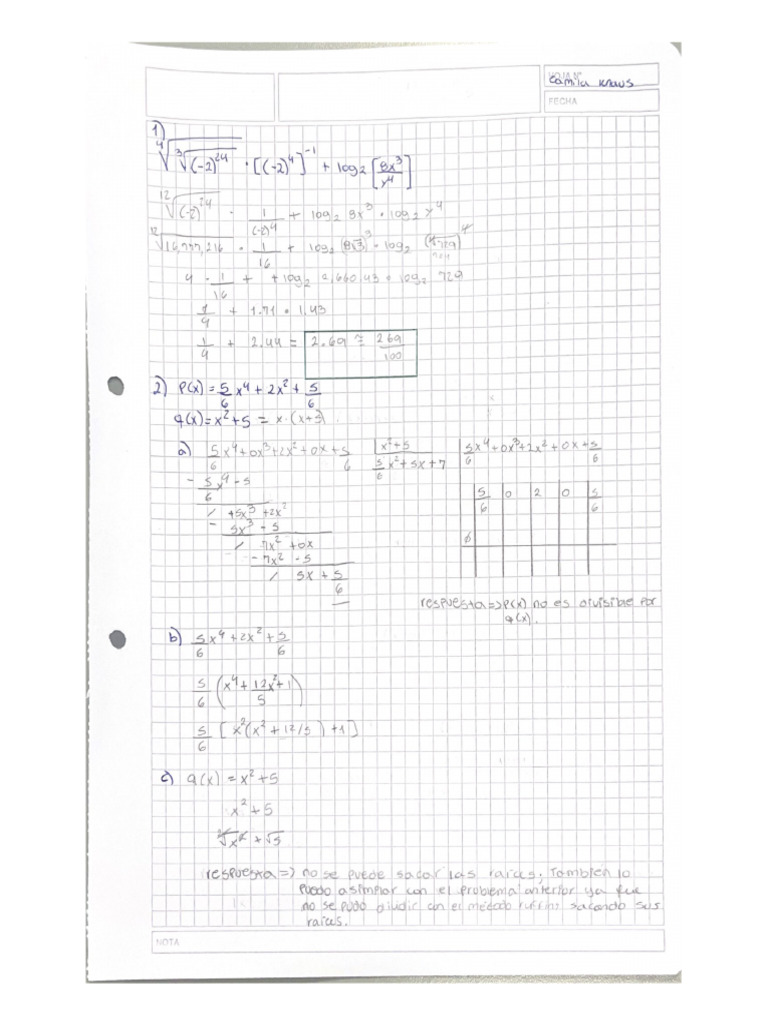 HOJA Nº
Camila Knaus
FECHA
1)
⁴√(³√((-2)²⁴)) · [(-2)⁴]⁻¹ + log₂ [8x³/x⁴]
¹²√((-2)²⁴) · 1/(-2)⁴ + log₂ 8x³ · log₂ x⁴
¹²√(16,777,216) · 1/16 + log₂ (8√3)³ · log₂
4 · 1/16 + + log₂ 2,660,43 · log₂ 729
1/4 + 1.71 · 1.43
1/4 + 2.44 = 2.69 ≅ 269/100
2) P(x) = 5/6 x⁴ + 2x² + 5/6
q(x) = x² + 5 = x · (x+5)
a) 5/6 x⁴ + 0x³ + 2x² + 0x + 5/6 | x² + 5
5/6 x² + 5x + 7
- 5/6 x⁴ - 5
/ +5x³ + 2x²
- 5x³ - 5
/ 7x² + 0x
- 7x² - 5
/ 5x + 5/6
5/6 x⁴ + 0x³ + 2x² + 0x + 5/6
5/6 0 2 0 5/6
respuesta => P(x) no es divisible por
q(x).
b) 5/6 x⁴ + 2x² + 5/6
5/6 (x⁴ + 12x²/5 + 1)
5/6 [x²(x² + 12/5) + 1]
c) q(x) = x² + 5
x² + 5
²√x² + √5
respuesta => no se puede sacar las raices, Tambien lo
puedo asimplar con el problema anterior ya que
no se pudo dividir con el metodo ruffini sacando sus
raices.
NOTA